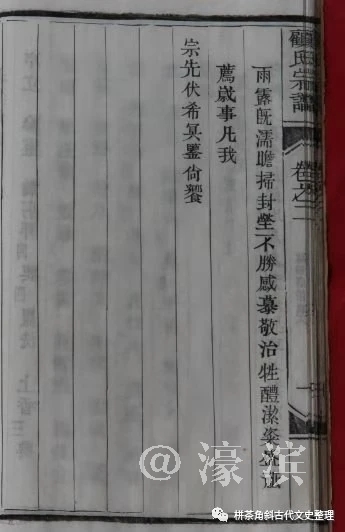 顧氏宗譜
卷之二
雨露既濡瞻掃封塋不勝感慕敬治牲醴潔粢
薦歲事凡我
宗先伏希冥鑒尚饗
@濠滨
栟茶角斜古代文史整理